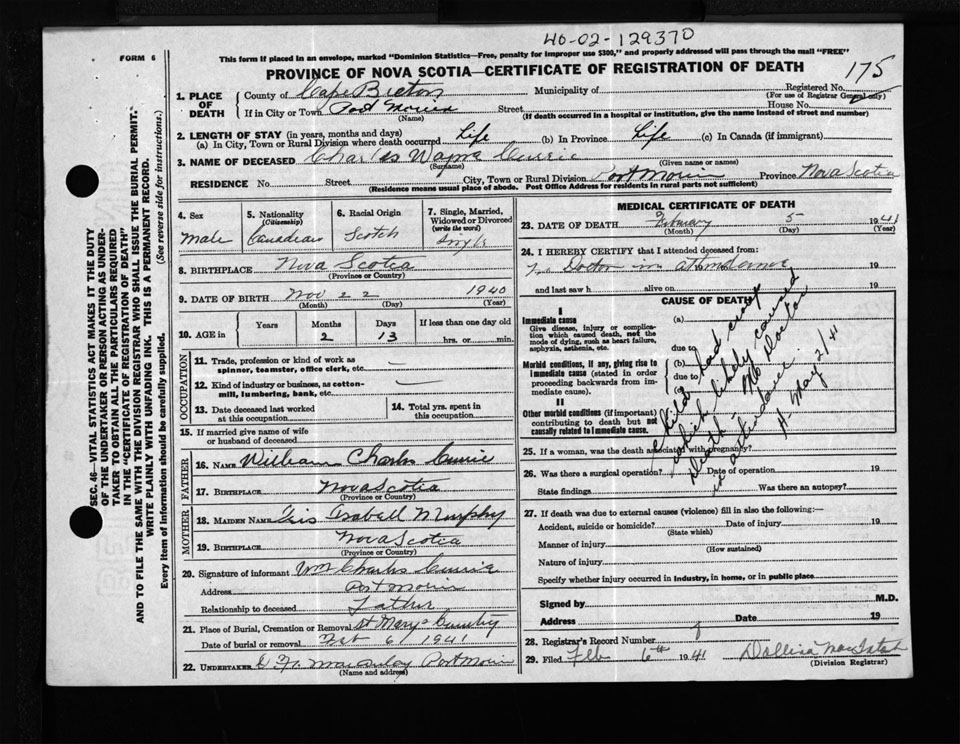 40-02-129370
FORM 6
This form if placed in an envelope, marked "Dominion Statistics—Free, penalty for improper use $300," and properly addressed will pass through the mail "FREE"
PROVINCE OF NOVA SCOTIA—CERTIFICATE OF REGISTRATION OF DEATH
175
1. PLACE OF DEATH
County of Cape Breton Municipality of Registered No.
(For use of Registrar General only)
If in City or Town Port Morien Street House No.
(Name) (If death occurred in a hospital or institution, give the name instead of street and number)
2. LENGTH OF STAY (in years, months and days)
(a) In City, Town or Rural Division where death occurred Life (b) In Province Life (c) In Canada (if immigrant)
3. NAME OF DECEASED Charles Wayne Currie
(Surname) (Given name or names)
RESIDENCE No. Street City, Town or Rural Division Port Morien Province Nova Scotia
(Residence means usual place of abode. Post Office Address for residents in rural parts not sufficient)
4. Sex
Male
5. Nationality
(Citizenship)
Canadian
6. Racial Origin
Scotch
7. Single, Married, Widowed or Divorced
(write the word)
Single
8. BIRTHPLACE Nova Scotia
(Province or Country)
9. DATE OF BIRTH Nov 22 1940
(Month) (Day) (Year)
10. AGE in Years Months Days If less than one day old
2 13 hrs. or min.
OCCUPATION
11. Trade, profession or kind of work as
spinner, teamster, office clerk, etc.
12. Kind of industry or business, as cotton-
mill, lumbering, bank, etc.
13. Date deceased last worked
at this occupation
14. Total yrs. spent in
this occupation
15. If married give name of wife
or husband of deceased
FATHER
16. NAME William Charles Currie
17. BIRTHPLACE Nova Scotia
(Province or Country)
MOTHER
18. MAIDEN NAME Iris Isabell Murphy
19. BIRTHPLACE Nova Scotia
(Province or Country)
20. Signature of informant Wm Charles Currie
Address Port Morien
Relationship to deceased Father
21. Place of Burial, Cremation or Removal St Marys Cemetry
Date of burial or removal Feb 6 1941
22. UNDERTAKER Port Morien
(Name and address)
MEDICAL CERTIFICATE OF DEATH
23. DATE OF DEATH February 5 1941
(Month) (Day) (Year)
24. I HEREBY CERTIFY that I attended deceased from:
No Doctor in attendance 19
and last saw h alive on 19
CAUSE OF DEATH
I
Immediate cause (a)
Give disease, injury or complica-
tion which caused death, not the
mode of dying, such as heart failure,
asphyxia, asthenia, etc. due to
Morbid conditions, if any, giving rise to (b)
immediate cause (stated in order due to
proceeding backwards from im-
mediate cause). (c)
II
Other morbid conditions (if important)
contributing to death but not
causally related to immediate cause.
Child had croup
which likely caused
death. No Doctor
in attendance.
May 2/41
25. If a woman, was the death associated with pregnancy?
26. Was there a surgical operation? Date of operation 19
State findings Was there an autopsy?
27. If death was due to external causes (violence) fill in also the following:—
Accident, suicide or homicide? Date of injury 19
(State which)
Manner of injury
(How sustained)
Nature of injury
Specify whether injury occurred in industry, in home, or in public place
Signed by M.D.
Address Date 19
28. Registrar's Record Number
29. Filed Feb 6th 1941
(Division Registrar)
SEC. 46—VITAL STATISTICS ACT MAKES IT THE DUTY
OF THE UNDERTAKER OR PERSON ACTING AS UNDER-
TAKER TO OBTAIN ALL THE PARTICULARS REQUIRED
IN THE "CERTIFICATE OF REGISTRATION OF DEATH"
AND TO FILE THE SAME WITH THE DIVISION REGISTRAR WHO SHALL ISSUE THE BURIAL PERMIT.
WRITE PLAINLY WITH UNFADING INK. THIS IS A PERMANENT RECORD.
Every item of information should be carefully supplied. (See reverse side for instructions.)